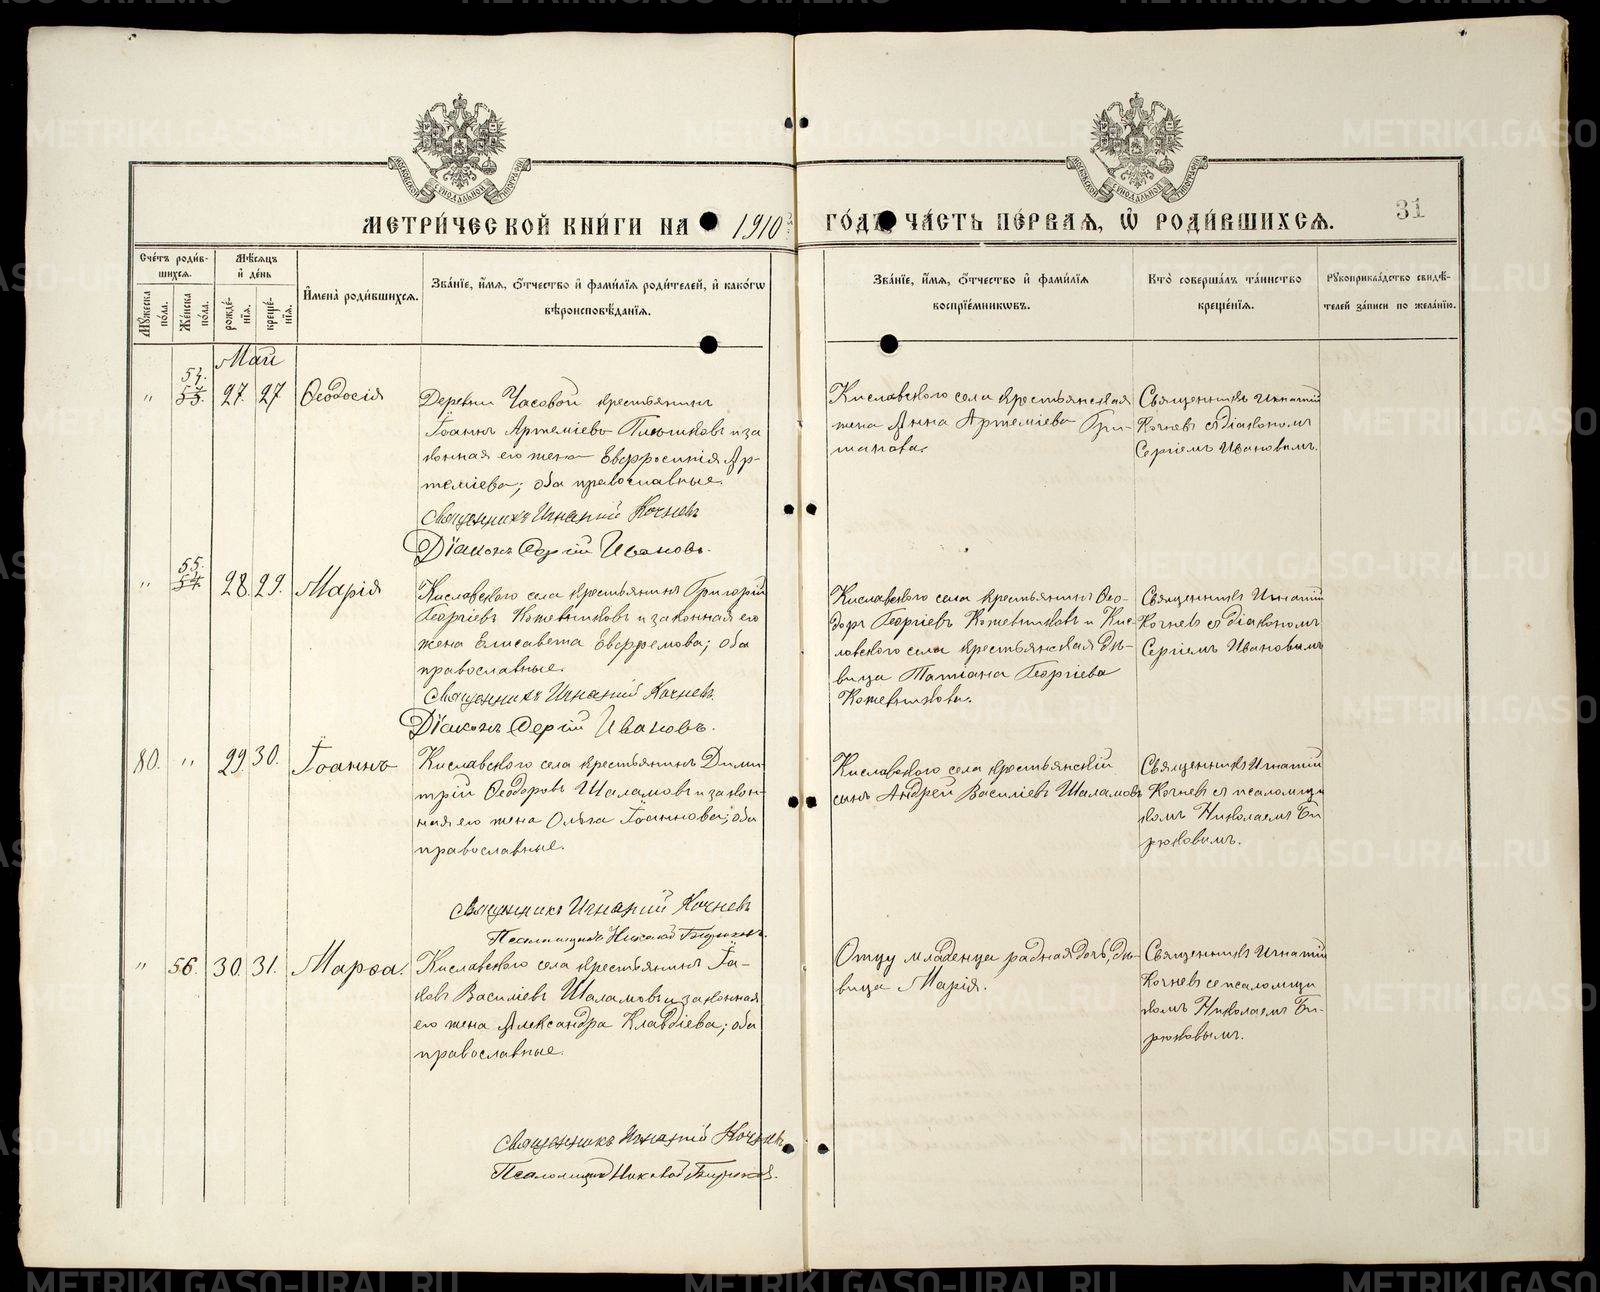 МЕТРИ́ЧЕСКОЙ КНИ́ГИ НА 1910
ГО́ДЪ ЧА́СТЬ ПЕ́РВАѦ, Ѡ҆ РОДИ́ВШИХСѦ.
31
Сче́тъ роди́в-
шихсѧ.
Мꙋ́жеска
по́ла.
Же́нска
по́ла.
Мѣ́сѧцъ
и҆ де́нь
рожде́-
нїѧ.
креще́-
нїѧ.
И҆мена̀ роди́вшихсѧ.
Зва́нїе, и҆́мѧ, ѻ҆́тчество и҆ фами́лїѧ роди́телей, и҆ како́гѡ
вѣроисповѣ́данїѧ.
Зва́нїе, и҆́мѧ, ѻ҆́тчество и҆ фами́лїѧ
воспрїе́мникѡвъ.
Кто̀ соверша́лъ та́инство
креще́нїѧ.
Рꙋкоприкла́дство свидѣ́-
телей за́писи по жела́нїю.
Май
" 54. 27. 27 Ѳеодосія
Деревни Часовой крестьянинъ
Іоаннъ Артеміевъ Плѣшковъ и за
конная его жена Евфросинія Ар-
теміева; оба православные.
Священникъ Игнатій Кочневъ
Діаконъ Сергій Ивановъ.
Кисловского села крестьянская
жена Анна Артеміева Гри-
шанова.
Священникъ Игнатій
Кочневъ съ діакономъ
Сергіемъ Ивановымъ.
" 55. 54. 28. 29. Марія
Кисловского села крестьянинъ Григорій
Георгіевъ Кожевниковъ и законная его
жена Елисавета Евфремова; оба
православные.
Священникъ Игнатій Кочневъ.
Діаконъ Сергій Ивановъ.
Кисловского села крестьянинъ Ѳео-
доръ Георгіевъ Кожевниковъ и Кис-
ловского села крестьянская дѣ-
вица Татіана Георгіева
Кожевникова.
Священникъ Игнатій
Кочневъ съ діакономъ
Сергіемъ Ивановымъ
80. " 29 30. Іоаннъ
Кисловского села крестьянинъ Дими-
трій Ѳеодоровъ Шаламовъ и закон-
ная его жена Ольга Іоаннова; оба
православные.
Священникъ Игнатій Кочневъ
Псаломщикъ Николай Бирюковъ.
Кисловского села крестьянскій
сынъ Андрей Василіевъ Шаламовъ
Священникъ Игнатій
Кочневъ съ псаломщи
комъ Николаемъ Би
рюковымъ.
" 56. 30. 31. Марѳа.
Кисловского села крестьянинъ Іа-
ковъ Василіевъ Шаламовъ и законная
его жена Александра Клавдіева; оба
православные.
Священникъ Игнатій Кочневъ
Псаломщикъ Николай Бирюковъ.
Отцу младенца родная дочь, дѣ-
вица Марія.
Священникъ Игнатій
Кочневъ съ псаломщи
комъ Николаемъ Би-
рюковымъ.
METRIKI.GASO-URAL.RU